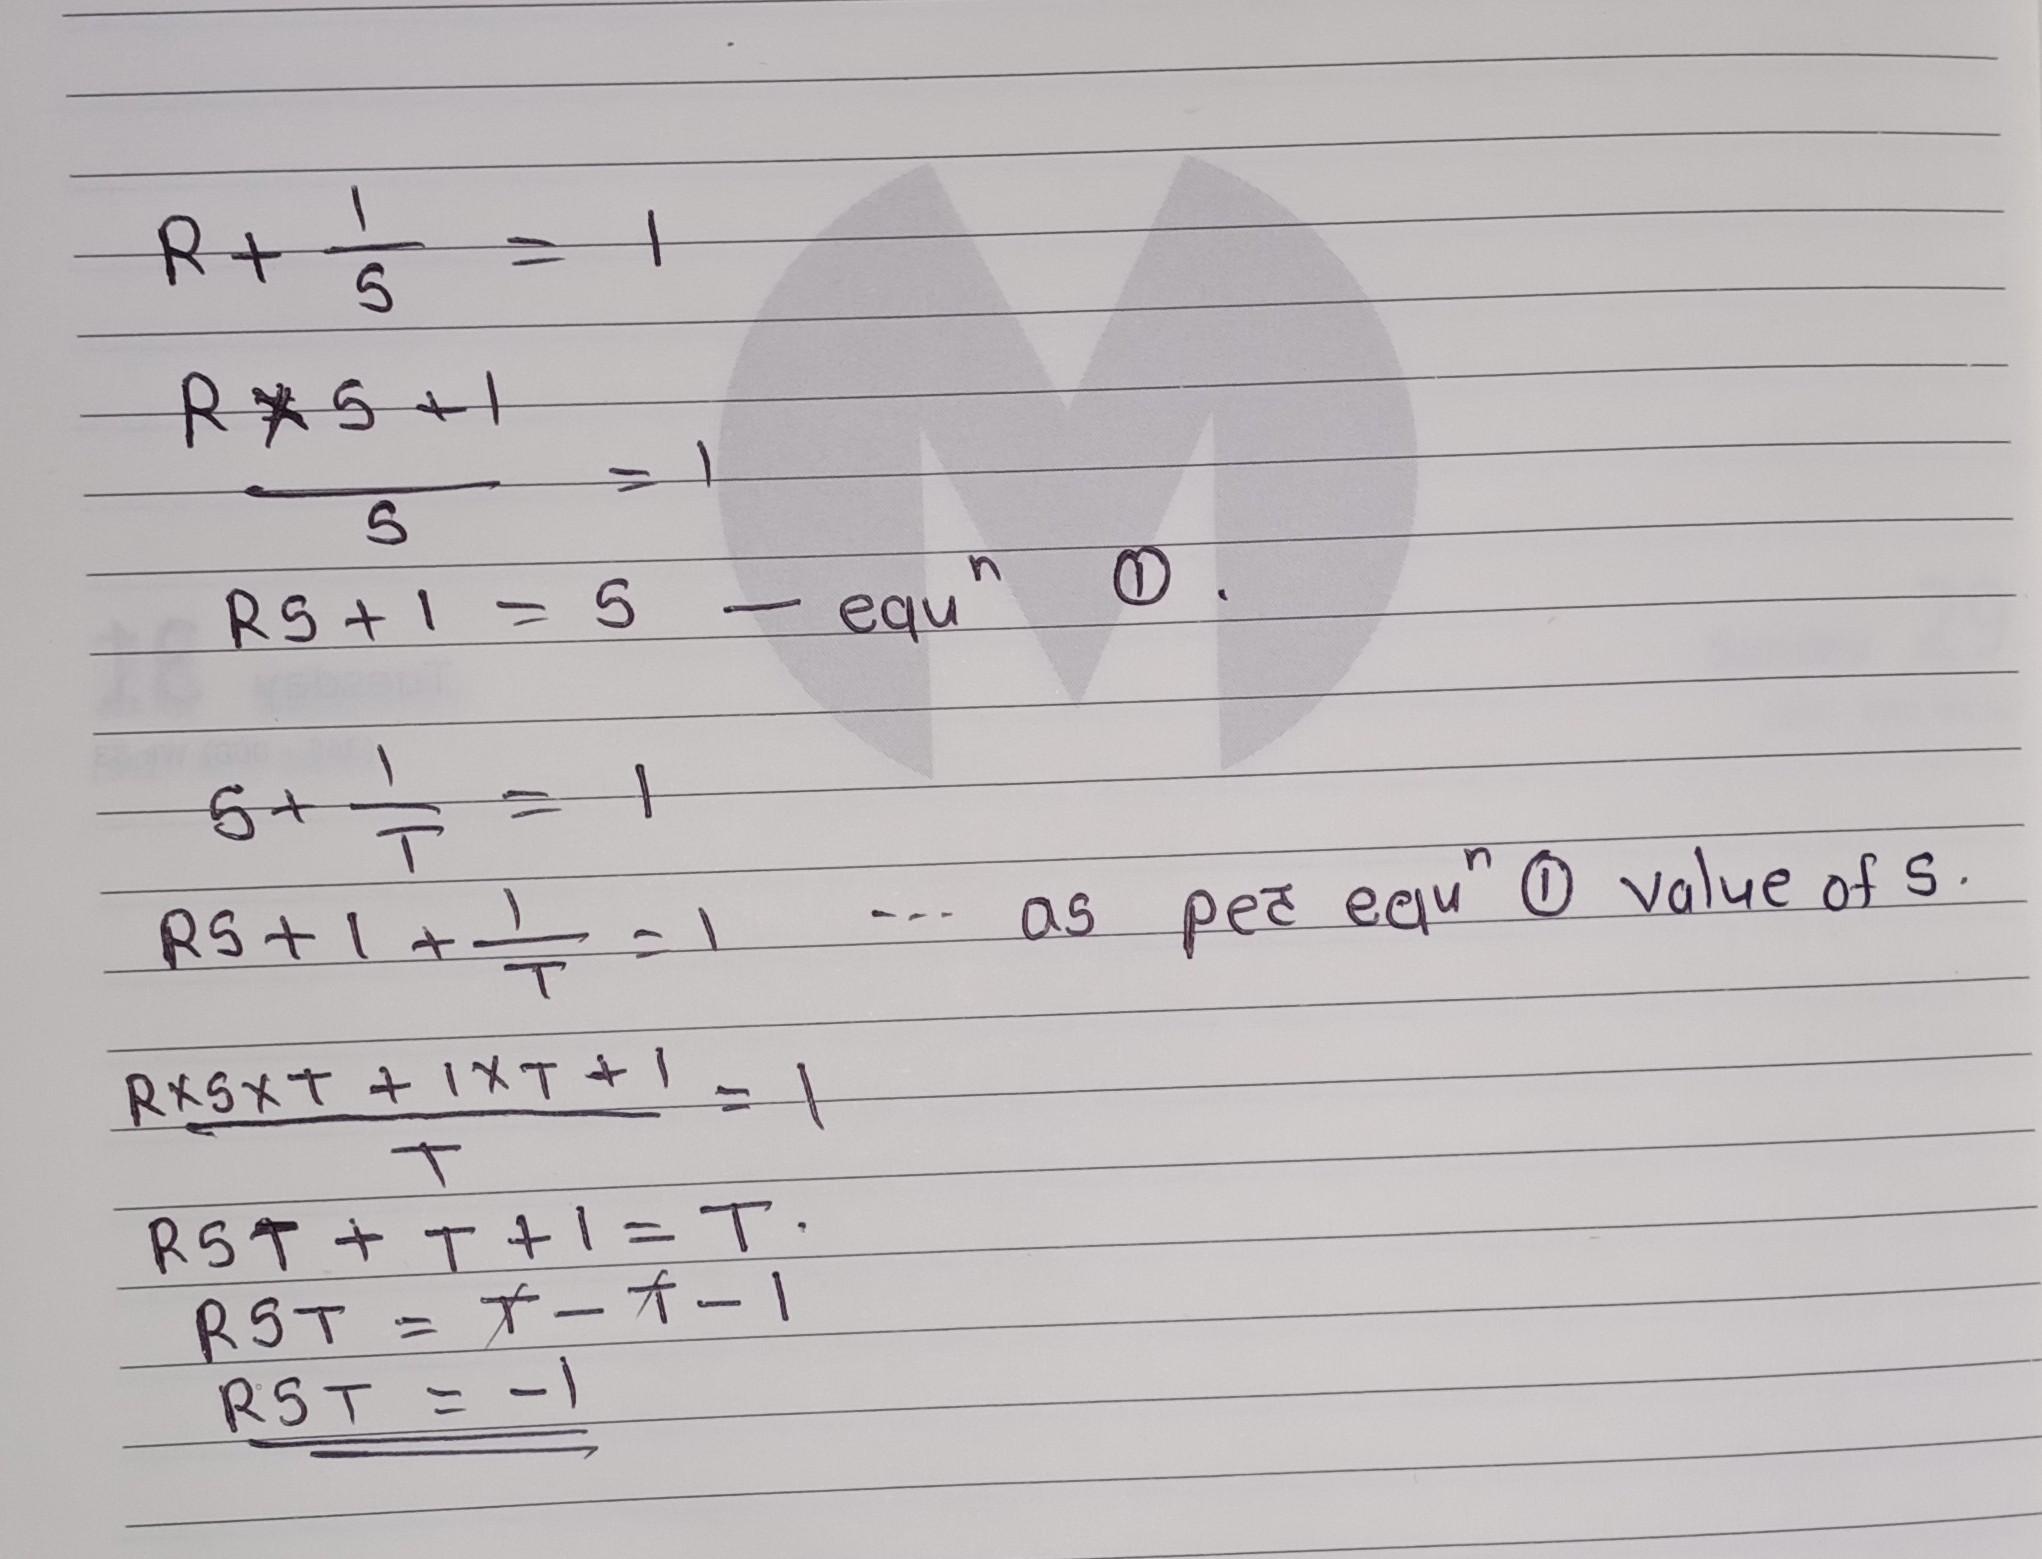 R + 1/S = 1
R × S + 1
/S = 1
RS + 1 = S — equⁿ ①.
S + 1/T = 1
RS + 1 + 1/T = 1 --- as per equⁿ ① value of S.
R×S×T + 1×T + 1 / T = 1
RST + T + 1 = T.
RST = T - T - 1
RST = -1
31 Tuesday